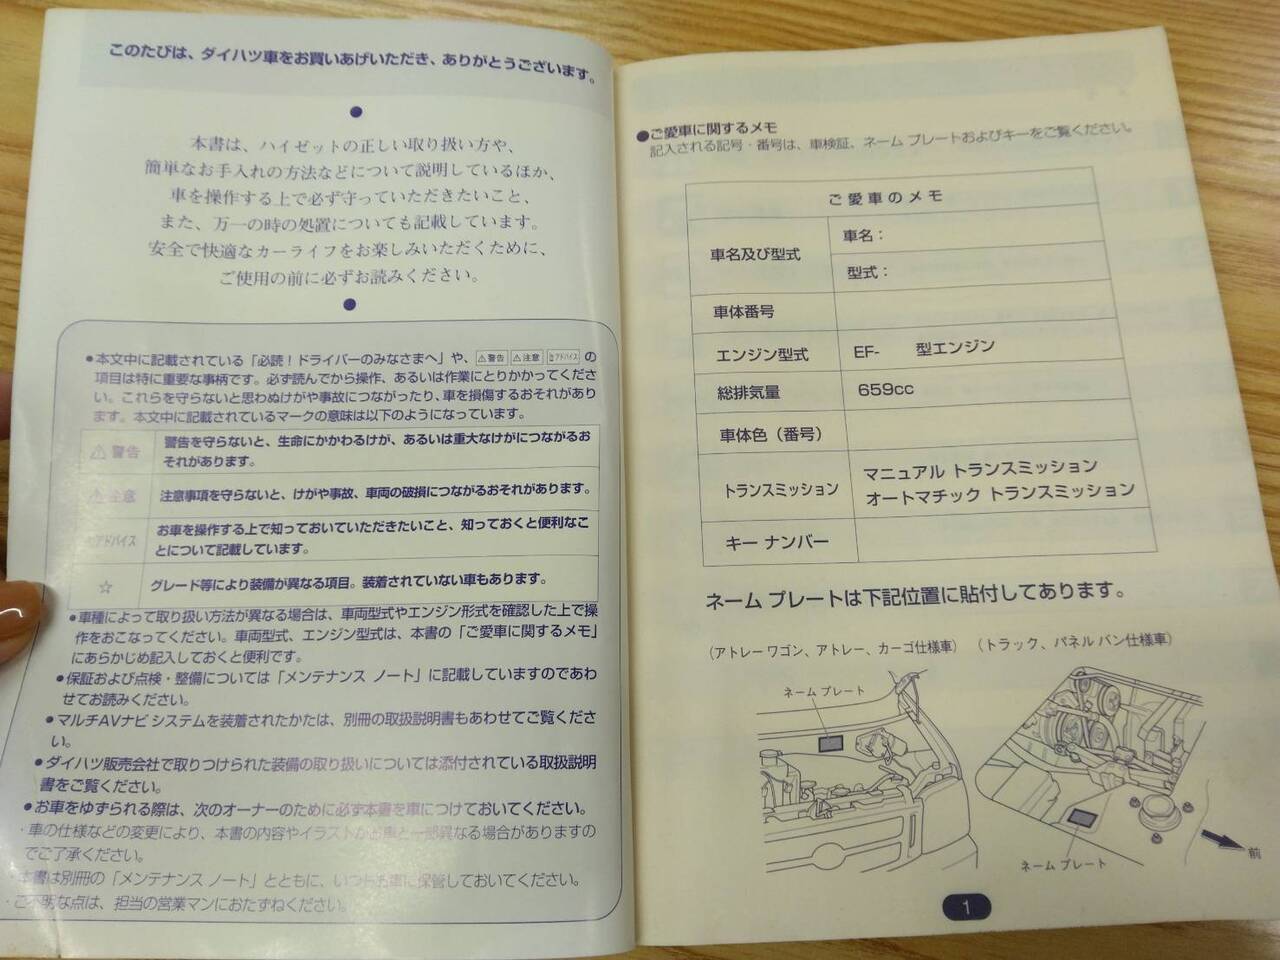 このたびは、ダイハツ車をお買いあげいただき、ありがとうございます。
本書は、ハイゼットの正しい取り扱い方や、
簡単なお手入れの方法などについて説明しているほか、
車を操作する上で必ず守っていただきたいこと、
また、万一の時の処置についても記載しています。
安全で快適なカーライフをお楽しみいただくために、
ご使用の前に必ずお読みください。
●本文中に記載されている「必読！ドライバーのみなさまへ」や、⚠警告 ⚠注意 アドバイス の
項目は特に重要な事柄です。必ず読んでから操作、あるいは作業にとりかかってくださ
い。これらを守らないと思わぬけがや事故につながったり、車を損傷するおそれがあり
ます。本文中に記載されているマークの意味は以下のようになっています。
⚠警告 警告を守らないと、生命にかかわるけが、あるいは重大なけがにつながるお
それがあります。
⚠注意 注意事項を守らないと、けがや事故、車両の破損につながるおそれがあります。
アドバイス お車を操作する上で知っておいていただきたいこと、知っておくと便利なこ
とについて記載しています。
☆ グレード等により装備が異なる項目。装着されていない車もあります。
●車種によって取り扱い方法が異なる場合は、車両型式やエンジン形式を確認した上で操
作をおこなってください。車両型式、エンジン型式は、本書の「ご愛車に関するメモ」
にあらかじめ記入しておくと便利です。
●保証および点検・整備については「メンテナンス ノート」に記載していますのであわ
せてお読みください。
●マルチAVナビ システムを装着されたかたは、別冊の取扱説明書もあわせてご覧くださ
い。
●ダイハツ販売会社で取りつけられた装備の取り扱いについては添付されている取扱説明
書をご覧ください。
●お車をゆずられる際は、次のオーナーのために必ず本書を車につけておいてください。
・車の仕様などの変更により、本書の内容やイラストがお車と一部異なる場合がありますの
でご了承ください。
本書は別冊の「メンテナンス ノート」とともに、いつもお車に保管しておいてください。
・ご不明な点は、担当の営業マンにおたずねください。
●ご愛車に関するメモ
記入される記号・番号は、車検証、ネーム プレートおよびキーをご覧ください。
ご愛車のメモ
車名及び型式 車名：
型式：
車体番号
エンジン型式 EF- 型エンジン
総排気量 659cc
車体色（番号）
トランスミッション マニュアル トランスミッション
オートマチック トランスミッション
キー ナンバー
ネーム プレートは下記位置に貼付してあります。
（アトレー ワゴン、アトレー、カーゴ仕様車） （トラック、パネル バン仕様車）
ネーム プレート
ネーム プレート
前
1